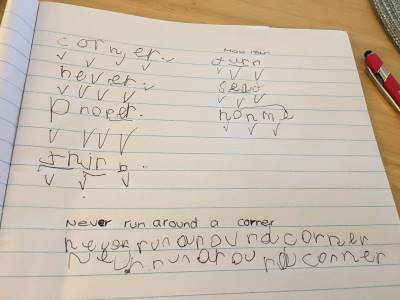 corner.
never.
proper.
thin
turn
seat
never run around a corner
never run around corner
never run around corner